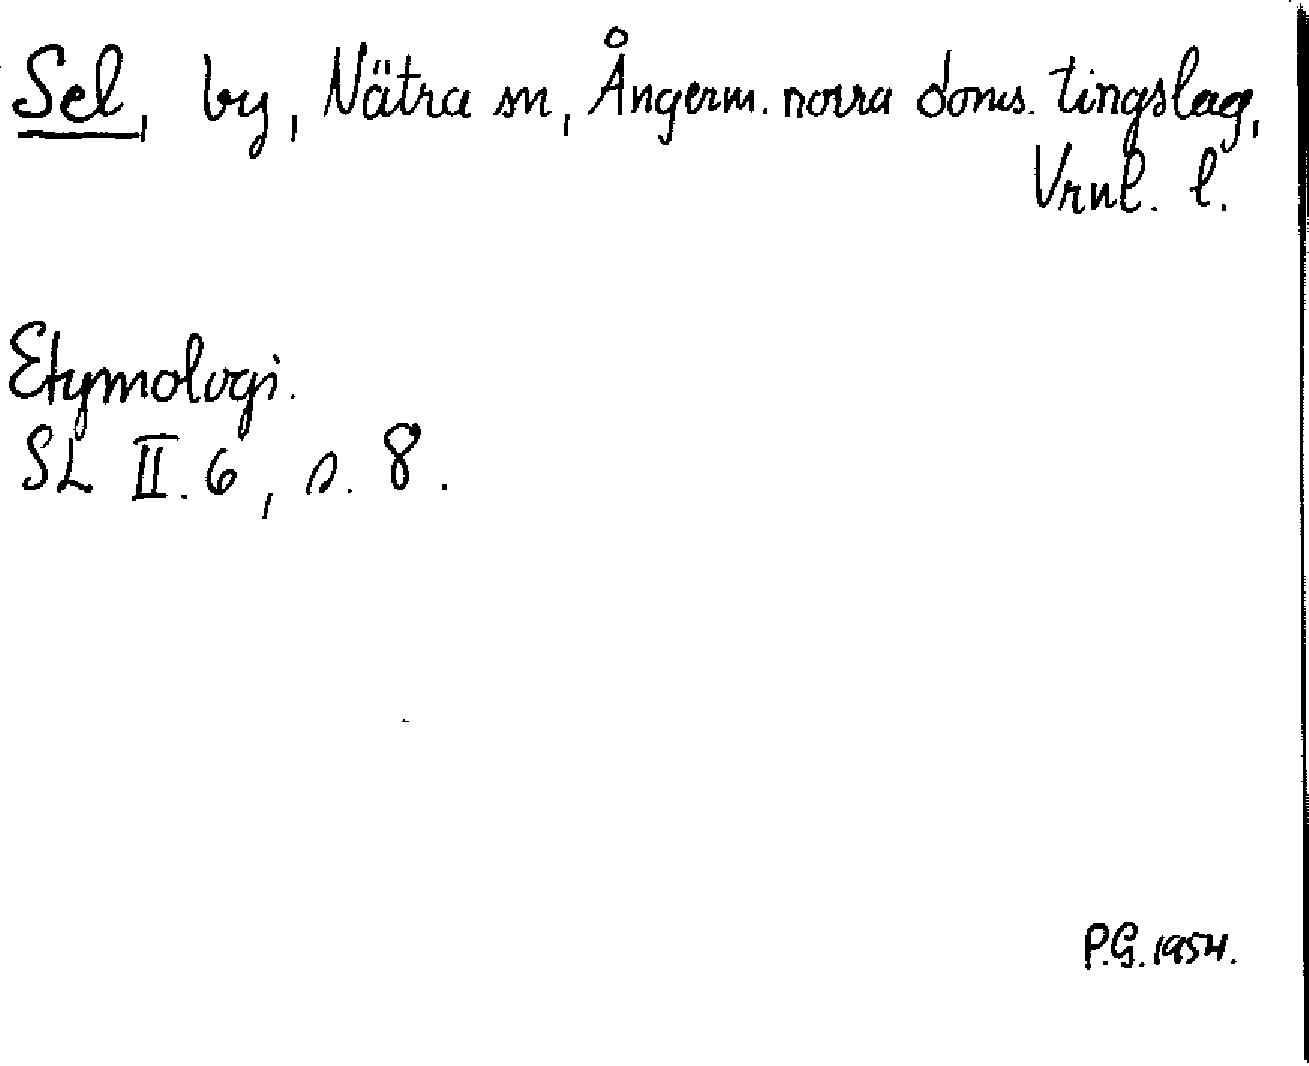 Sel, by, Nätra sn, Ångerm. norra doms. tingslag,
Vrnl. l.
Etymologi.
SL II. 6, s. 8.
P.G. 1954.